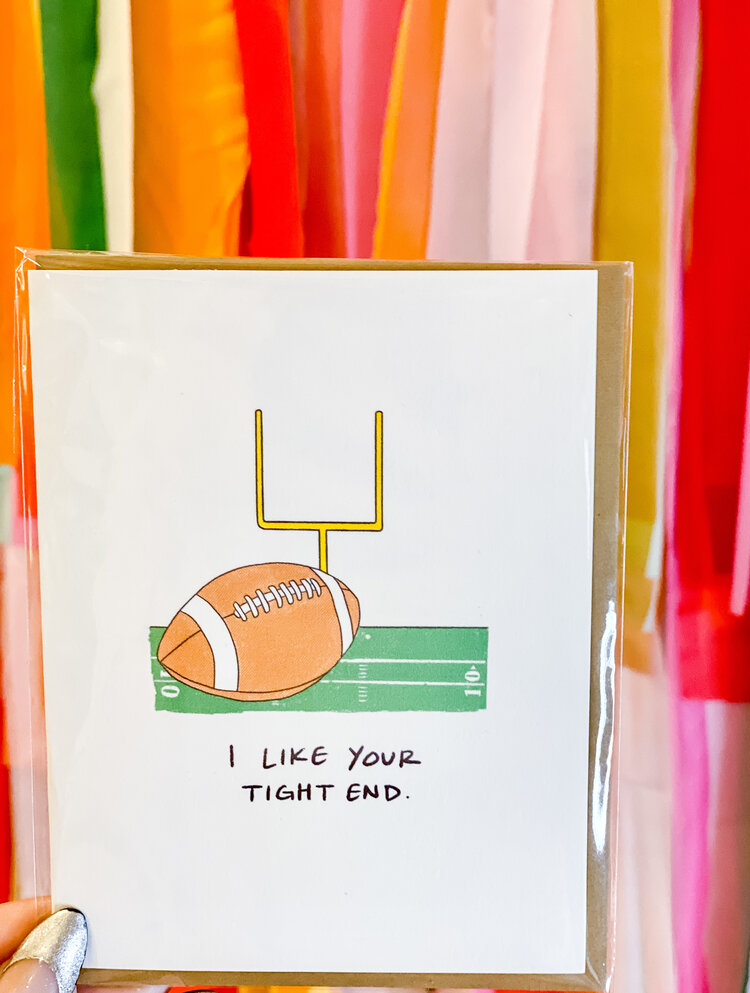 I LIKE YOUR
TIGHT END.
10